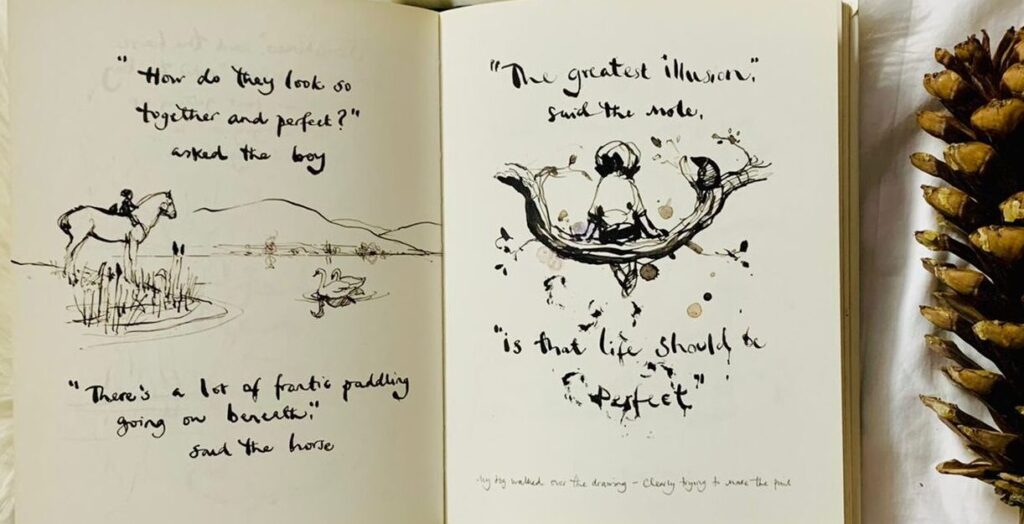 "How do they look so
together and perfect?"
asked the boy
"There's a lot of frantic paddling
going on beneath."
said the horse
"The greatest illusion",
said the mole,
"is that life should be
perfect"
My dog walked over the drawing – clearly trying to make the point